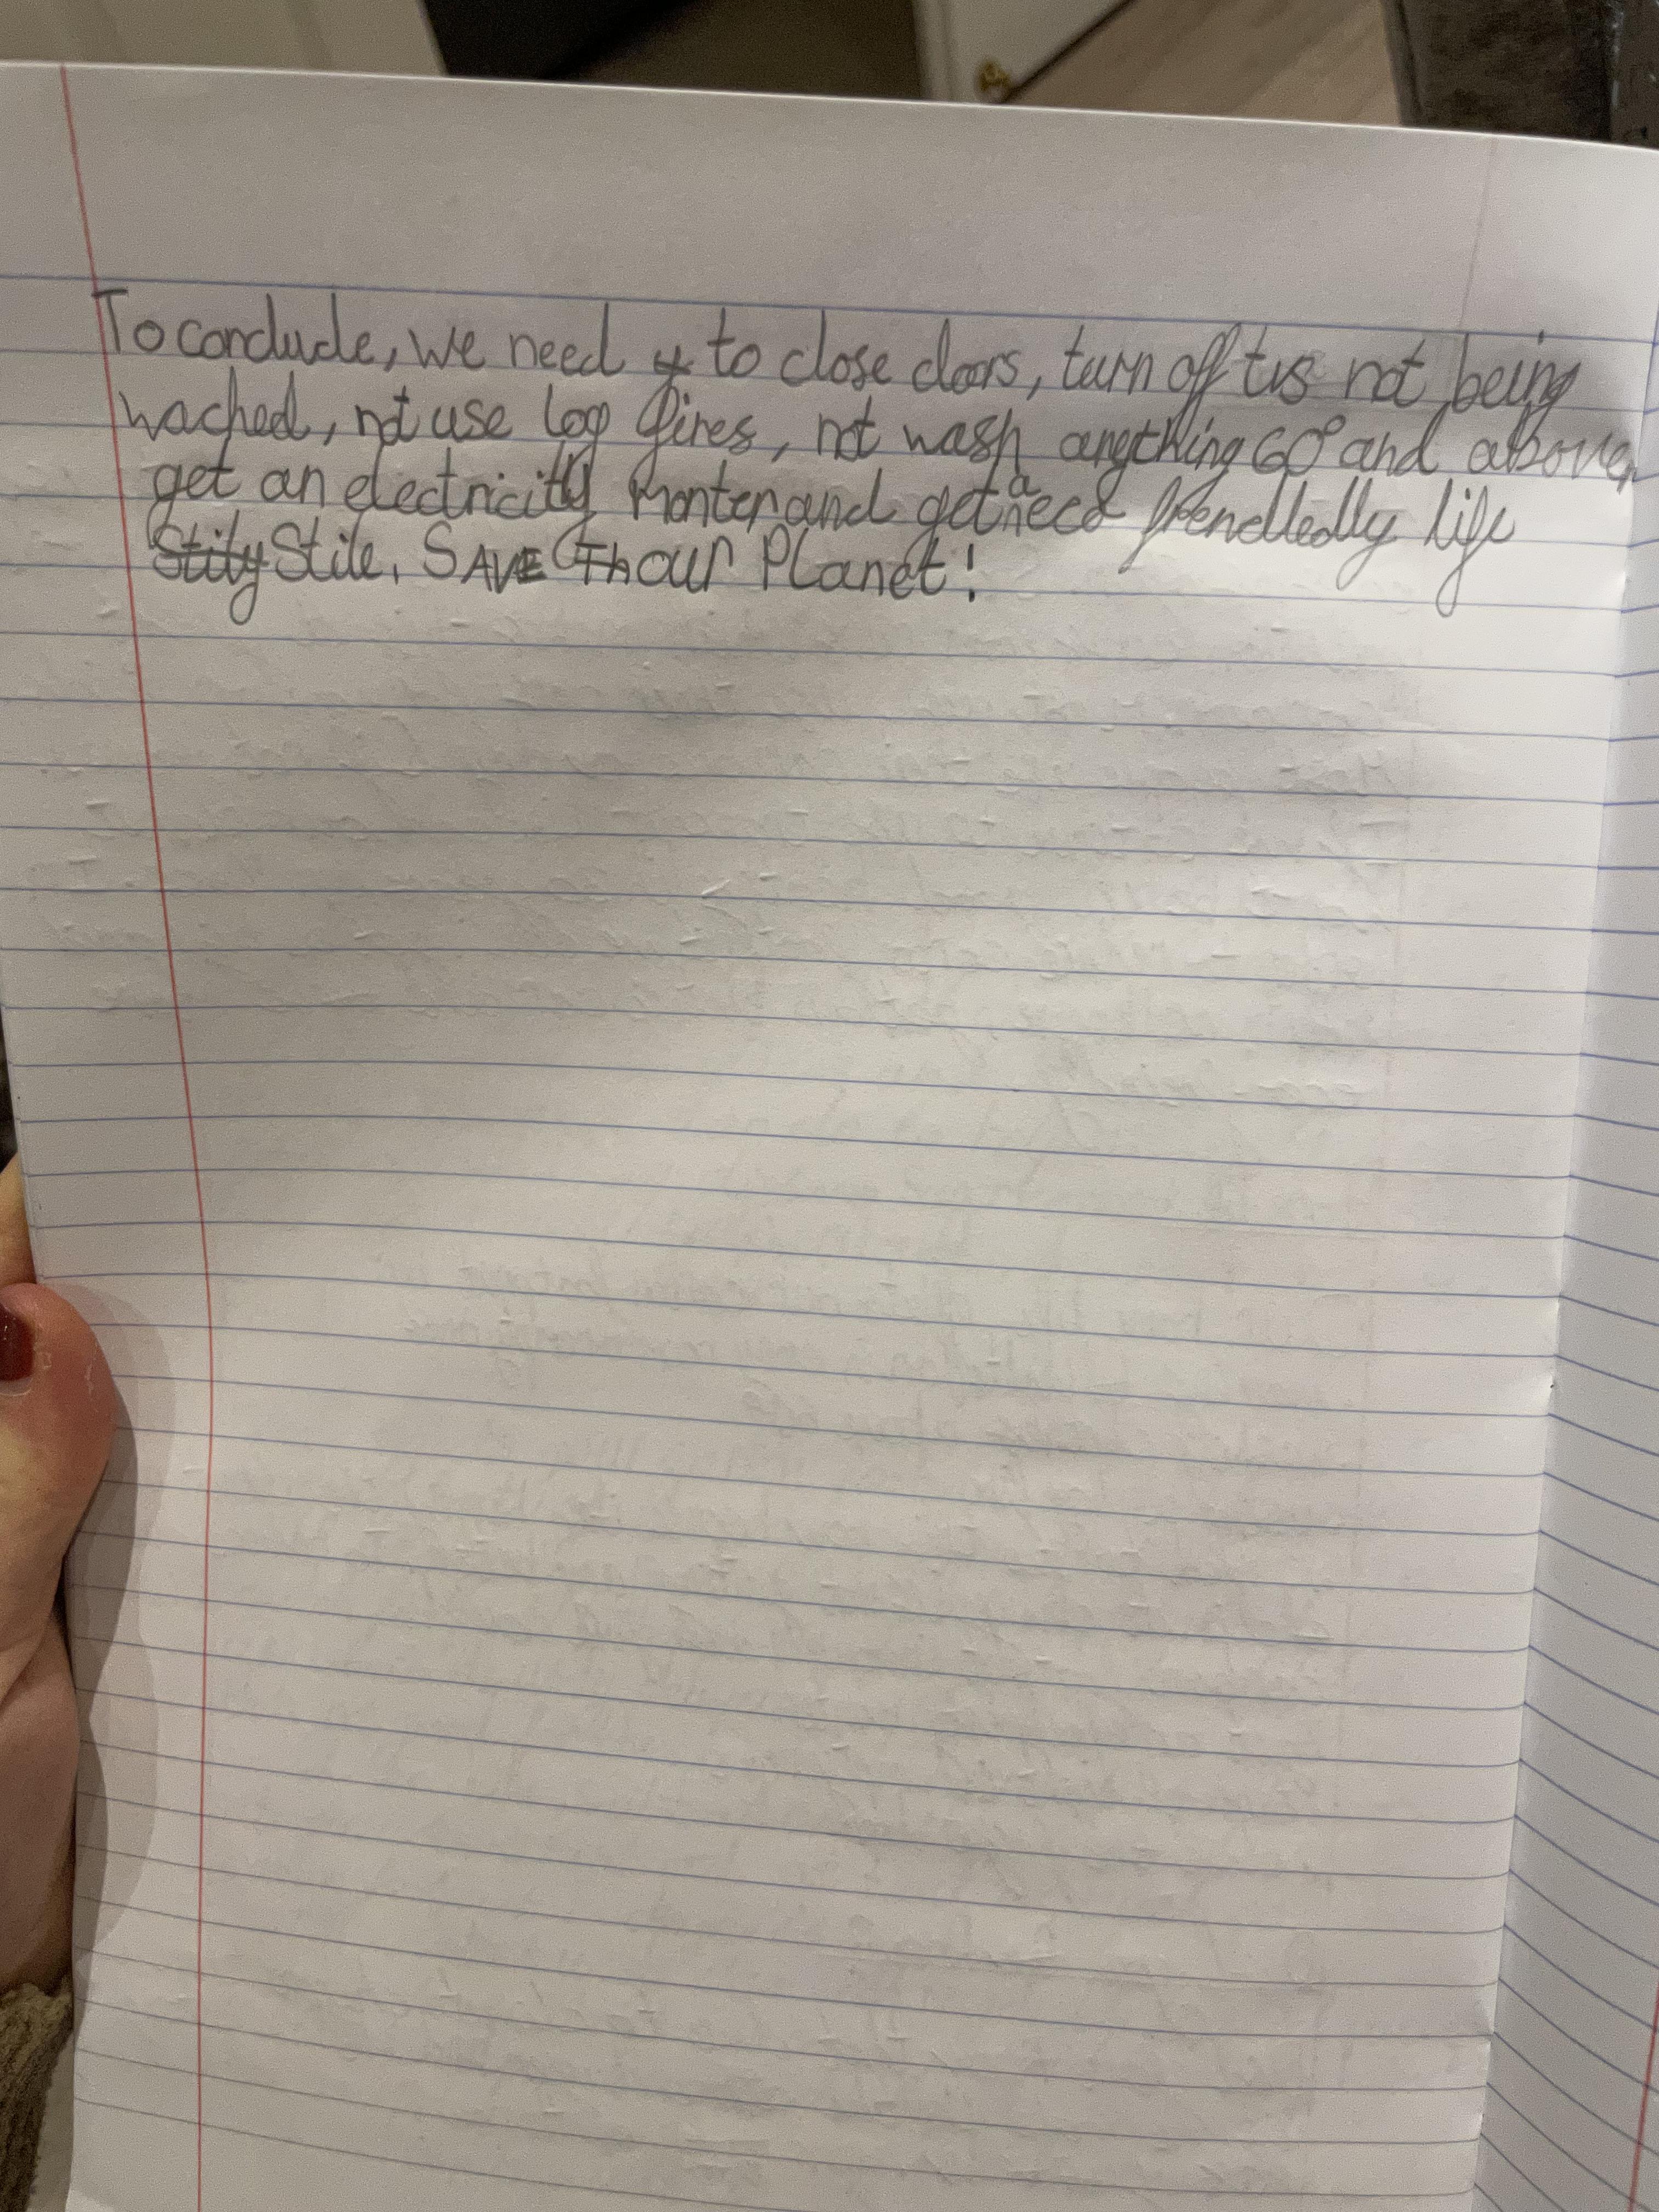 To conclude, we need to close doors, turn off tvs not being
wached, not use log fires, not wash anything 60° and above,
get an electricity monter and get a eco friendledly life
Stity Stile. SAVE Th our Planet!